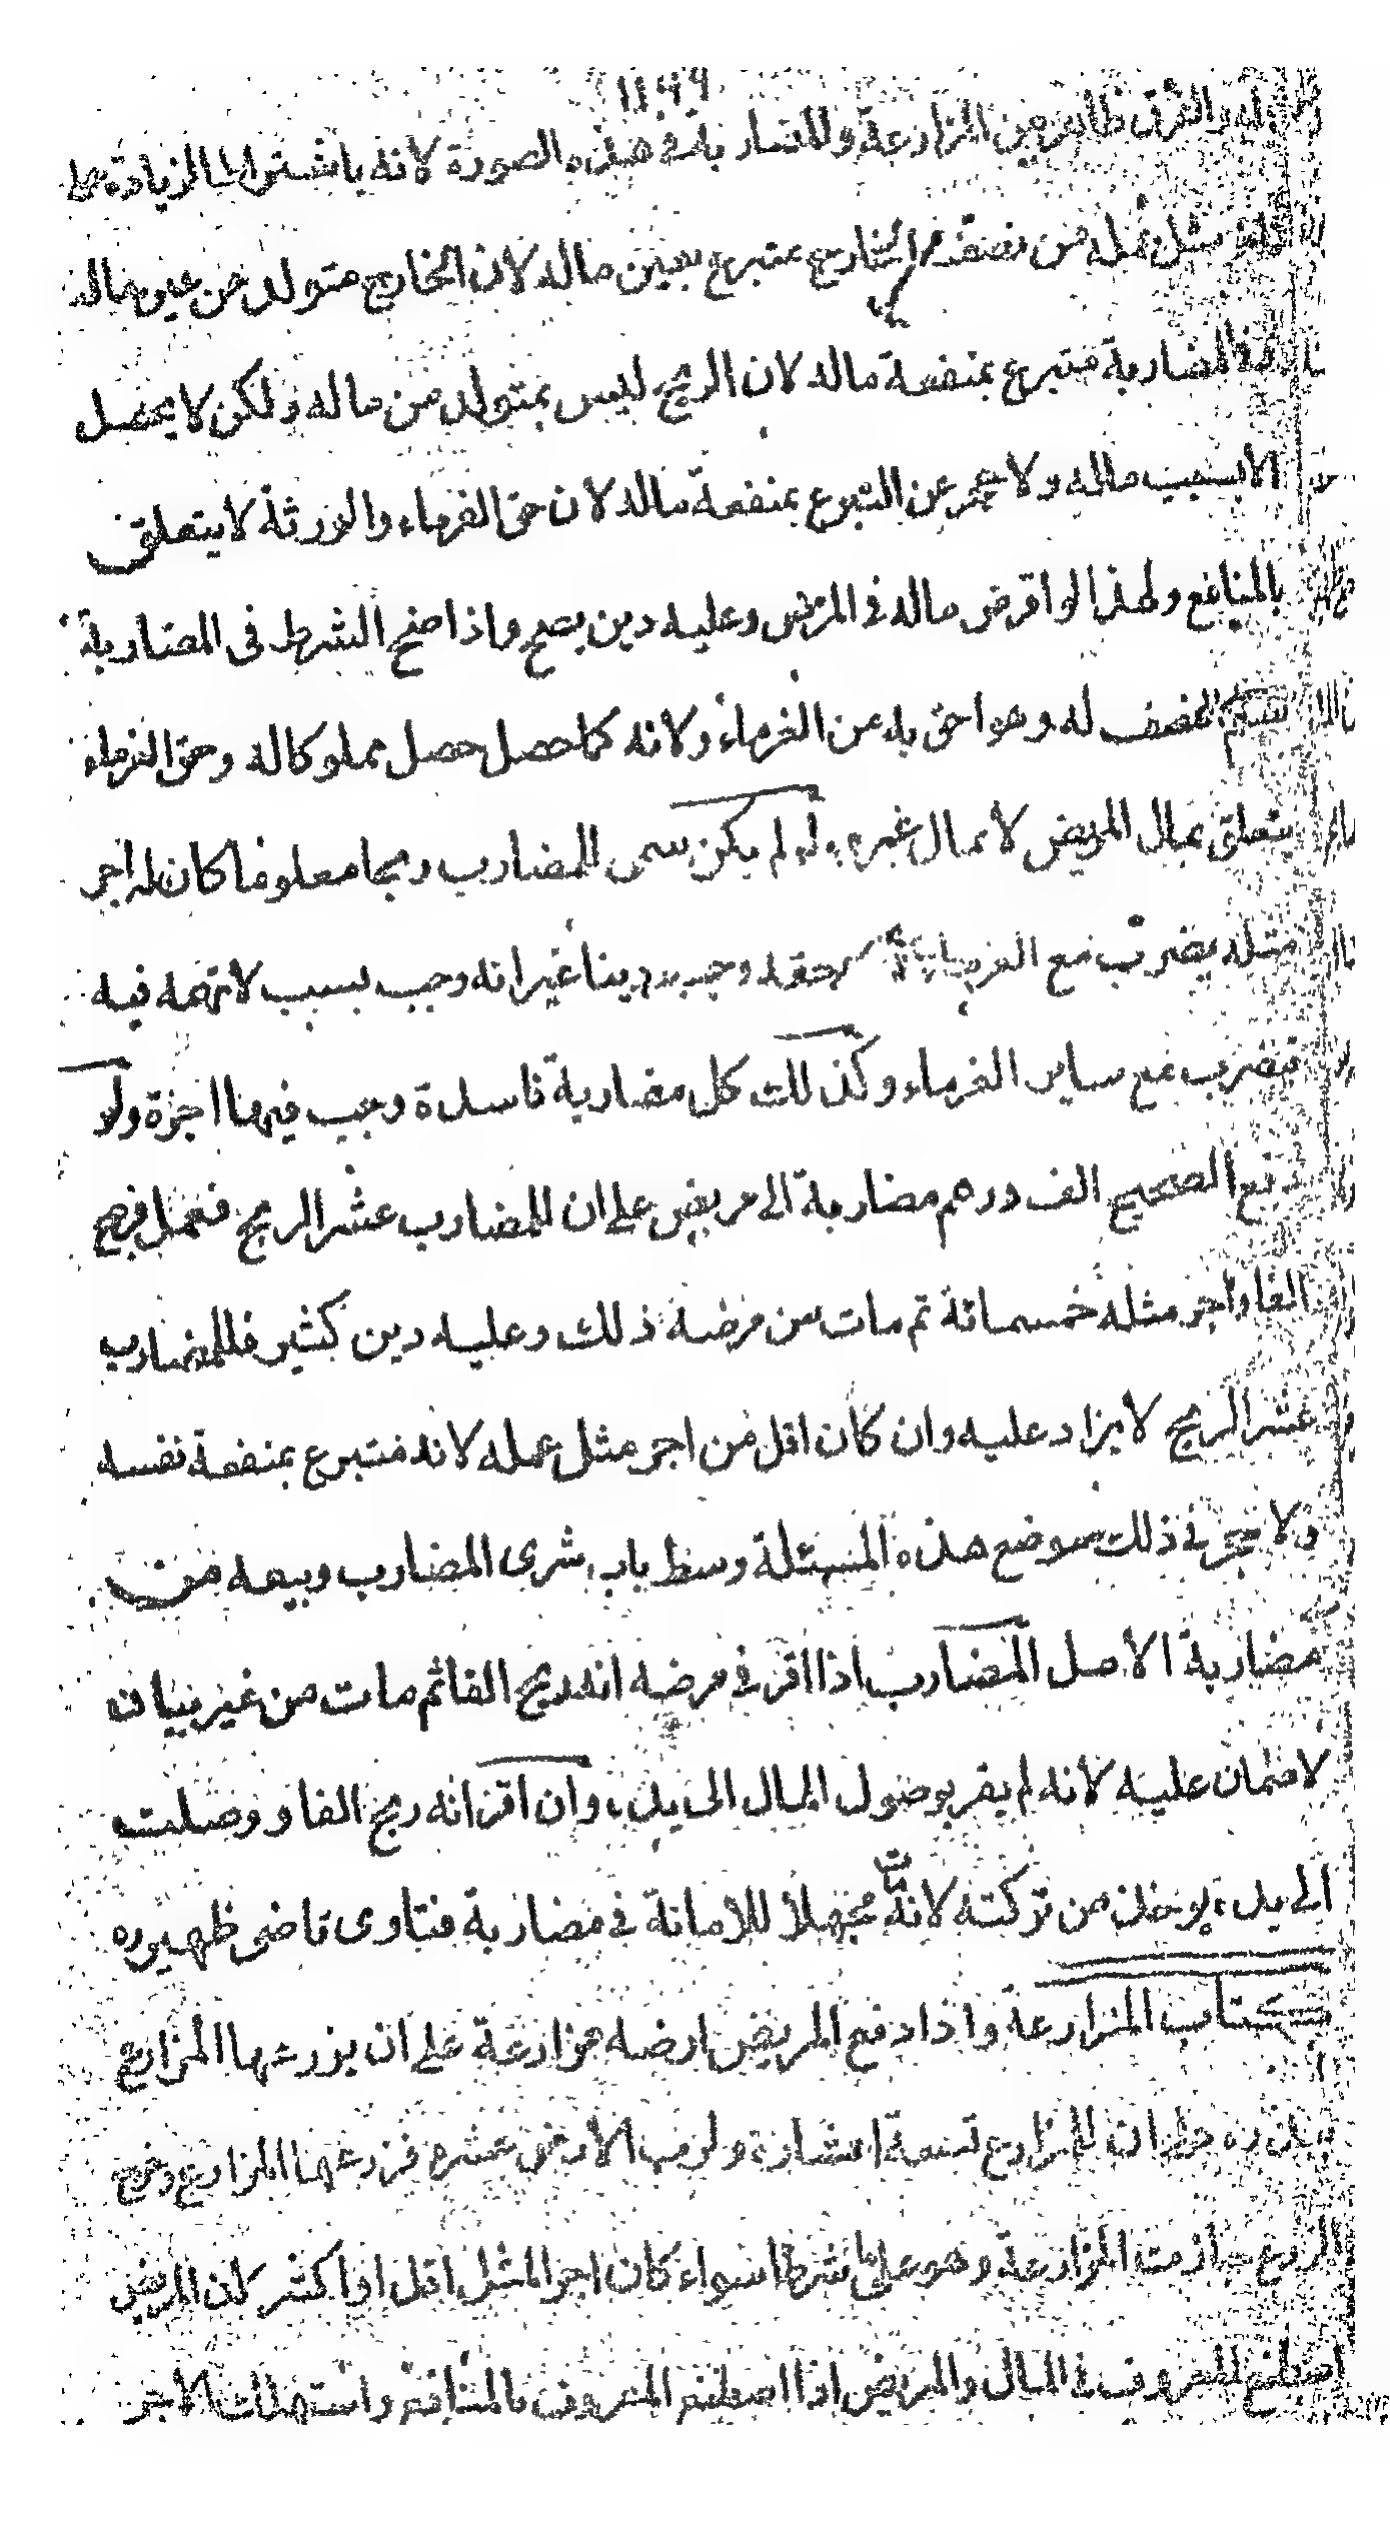 ١١٩٩
والفرق ظاهر بين المزارعة والمضاربة في هذه الصورة لانه باشتراط الزيادة على
اجر مثل عمله من نصف الخارج متبرع بعين ماله لان الخارج متولد من عين ماله
المضاربة متبرع بمنفعة ماله لان الربح ليس بمتولد من ماله ولكن لا يحصل
الا بسبب ماله ولا حجر عن التبرع بمنفعة ماله لان حق الغرماء والورثة لا يتعلق
بالمنافع ولهذا لو اقرض ماله في المرض وعليه دين يصح واذا صح الشرط في المضاربة
النصف له وهو احق به من الغرماء ولانه كما حصل حصل مملوكا له وحق الغرماء
يتعلق بمال المريض لا بمال غيره ولو لم يكن سمى للمضارب ربحا معلوما كان له اجر
مثله يضرب مع الغرماء لان حقه وجب دينا غير انه وجب بسبب لا تهمة فيه
فيضرب مع ساير الغرماء وكذلك كل مضاربة فاسدة وجب فيها اجرة ولو
دفع الصحيح الف درهم مضاربة الى مريض على ان للمضارب عشر الربح فعمل فربح
الفا واجر مثله خمسمائة ثم مات من مرضه ذلك وعليه دين كثير فللمضارب
عشر الربح لا يزاد عليه وان كان اقل من اجر مثل عمله لانه متبرع بمنفعة نفسه
ولا حجر في ذلك موضع هذه المسئلة وسط باب شرى المضارب وبيعه من
مضاربة الاصل المضارب اذا اقر في مرضه انه ربح الفا ثم مات من غير بيان
لا ضمان عليه لانه لم يقر بوصول المال الى يده وان اقر انه ربح الفا ووصلت
الى يده يوخذ من تركته لانه مات مجهلا للامانة في مضاربة فتاوى قاضى ظهيره
كتاب المزارعة واذا دفع المريض ارضه مزارعة على ان يزرعها المزارع
ببذره على ان للمزارع تسعة اعشاره ولرب الارض عشره فزرعها المزارع وخرج
الزرع جازت المزارعة وهو على ما شرطا سواء كان اجر المثل اقل او اكثر لان المريض
اصطنع المعروف في المال والمريض اذا اصطنع المعروف بالمنافع واستهلك الاجر